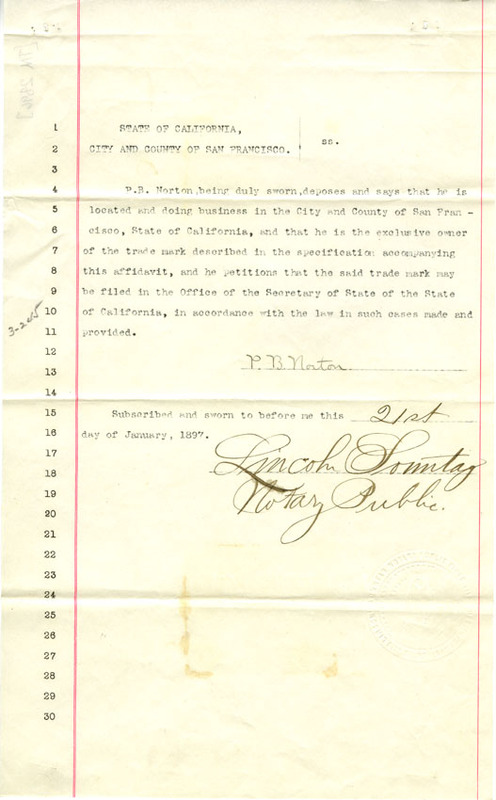 1 STATE OF CALIFORNIA,
2 CITY AND COUNTY OF SAN FRANCISCO. ss.
3
4 P.B. Norton,being duly sworn,deposes and says that he is
5 located and doing business in the City and County of San Fran -
6 cisco, State of California, and that he is the exclusive owner
7 of the trade mark described in the specification accompanying
8 this affidavit, and he petitions that the said trade mark may
9 be filed in the Office of the Secretary of State of the State
10 of California, in accordance with the law in such cases made and
11 provided.
12
13 P. B. Norton
14
15 Subscribed and sworn to before me this 21st
16 day of January, 1897.
17 Lincoln Sonntag
18
19 Notary Public.
20
21
22
23
24
25
26
27
28
29
30